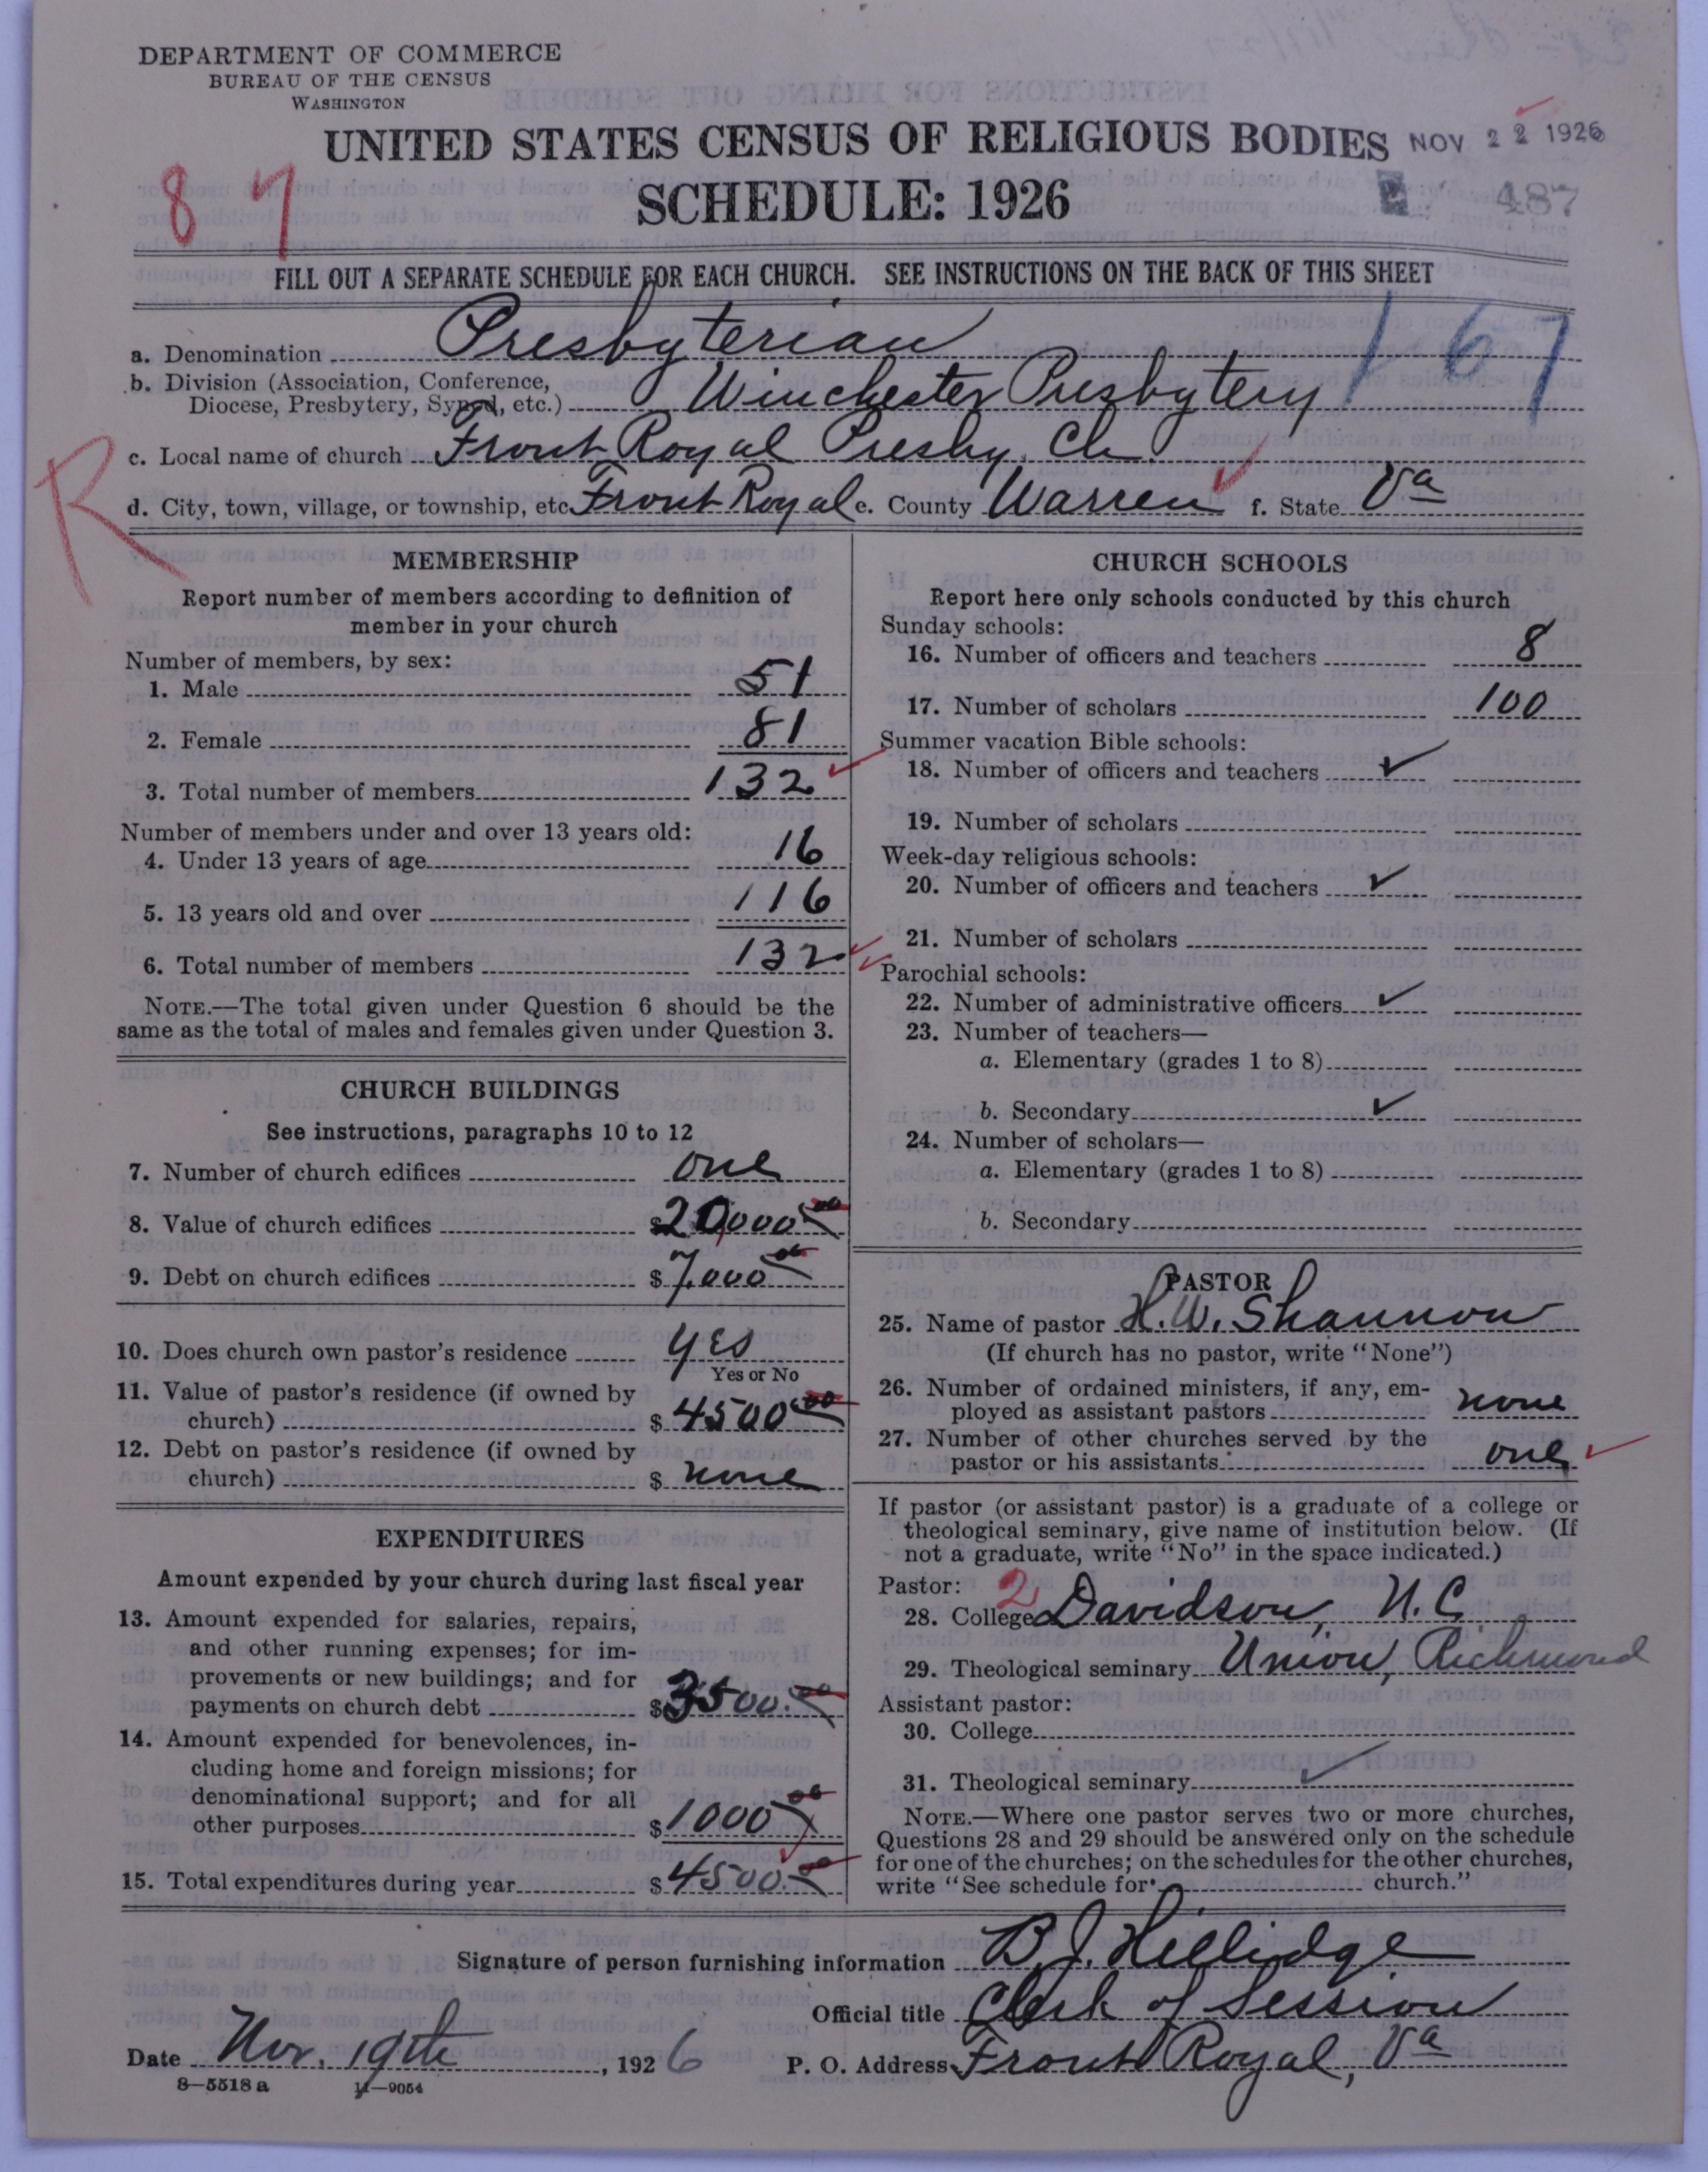 DEPARTMENT OF COMMERCE
BUREAU OF THE CENSUS
WASHINGTON
UNITED STATES CENSUS OF RELIGIOUS BODIES NOV 22 1926
SCHEDULE: 1926
487
87
FILL OUT A SEPARATE SCHEDULE FOR EACH CHURCH. SEE INSTRUCTIONS ON THE BACK OF THIS SHEET
167
a. Denomination Presbyterian
b. Division (Association, Conference,
Diocese, Presbytery, Synod, etc.) Winchester Presbytery
R
c. Local name of church Front Royal Presby. Ch
d. City, town, village, or township, etc. Front Royal e. County Warren f. State Va
MEMBERSHIP
Report number of members according to definition of
member in your church
Number of members, by sex:
1. Male 51
2. Female 81
3. Total number of members 132
Number of members under and over 13 years old:
4. Under 13 years of age 16
5. 13 years old and over 116
6. Total number of members 132
NOTE.—The total given under Question 6 should be the
same as the total of males and females given under Question 3.
CHURCH BUILDINGS
See instructions, paragraphs 10 to 12
7. Number of church edifices one
8. Value of church edifices $20,000 00
9. Debt on church edifices $7,000 00
10. Does church own pastor's residence yes
Yes or No
11. Value of pastor's residence (if owned by
church) $4500 00
12. Debt on pastor's residence (if owned by
church) $ none
EXPENDITURES
Amount expended by your church during last fiscal year
13. Amount expended for salaries, repairs,
and other running expenses; for im-
provements or new buildings; and for
payments on church debt $3500.00
14. Amount expended for benevolences, in-
cluding home and foreign missions; for
denominational support; and for all
other purposes $1000 00
15. Total expenditures during year $4500.00
CHURCH SCHOOLS
Report here only schools conducted by this church
Sunday schools:
16. Number of officers and teachers 8
17. Number of scholars 100
Summer vacation Bible schools:
18. Number of officers and teachers ✓
19. Number of scholars
Week-day religious schools:
20. Number of officers and teachers ✓
21. Number of scholars
Parochial schools:
22. Number of administrative officers ✓
23. Number of teachers—
a. Elementary (grades 1 to 8)
b. Secondary ✓
24. Number of scholars—
a. Elementary (grades 1 to 8)
b. Secondary
PASTOR
25. Name of pastor H.W. Shannon
(If church has no pastor, write "None")
26. Number of ordained ministers, if any, em-
ployed as assistant pastors none
27. Number of other churches served by the
pastor or his assistants one
If pastor (or assistant pastor) is a graduate of a college or
theological seminary, give name of institution below. (If
not a graduate, write "No" in the space indicated.)
Pastor: 2
28. College Davidson, N.C.
29. Theological seminary Union, Richmond
Assistant pastor:
30. College
31. Theological seminary ✓
NOTE.—Where one pastor serves two or more churches,
Questions 28 and 29 should be answered only on the schedule
for one of the churches; on the schedules for the other churches,
write "See schedule for church."
Signature of person furnishing information B J. Hillidge
Official title Clerk of Session
Date Nov. 19th, 1926 P. O. Address Front Royal, Va
8—5518 a 11—9054